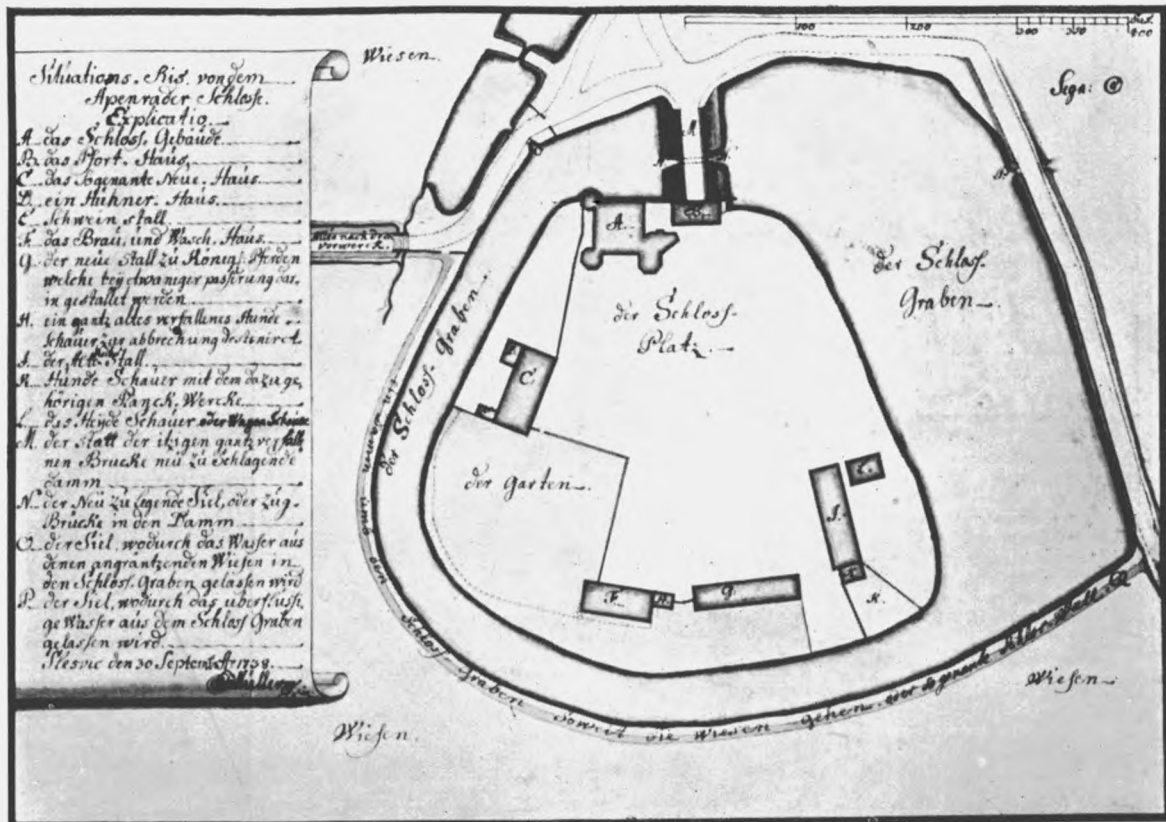 Situations-Ris. von dem
Apenrader Schlosse.
Explicatio
A. das Schloss-Gebäude
B. das Pfort-Haus,
C. das sogenante Neue-Haus
D. ein Hühner-Haus
E. Schwein stall
F. das Brau, und Wasch-Haus.
G. der neue Stall zu Königl. Pferden
welche bey etwaniger passirung das.
in gestallet werden
H. ein gantz altes verfallenes Hunde-
Schauer zur abbrechung desteniret.
I. der Stall
K. Hunde Schauer mit dem dazu ge,
hörigen Planck-Wercke
L. das Heyde Schauer oder Wagen Schauer
M. der statt der itzigen gantz verfalle
nen Brucke neu zu Schlagende
damm
N. der Neu zu legende Siel, oder Zug-
Brucke in den Damm
O. der Siel, wodurch das Wasser aus
denen angrantzenden Wiesen in
den Schloss-Graben gelassen wird
P. der Siel, wodurch das uberflussi,
ge Wasser aus dem Schloss Graben
gelassen wird
Slesvic den 30 Septembr 1738.
Wiesen.
100
200
300
350
400
M
A.
B.
der Schloss-
Graben
der Schloss-
Platz
Allee nach dem
vorwerck.
der Schloss-Graben
C.
der Garten
I.
F.
H.
G.
K.
um den Schloss Graben soweit die Wiesen gehen. oder so genante
Wiesen
Wiesen.